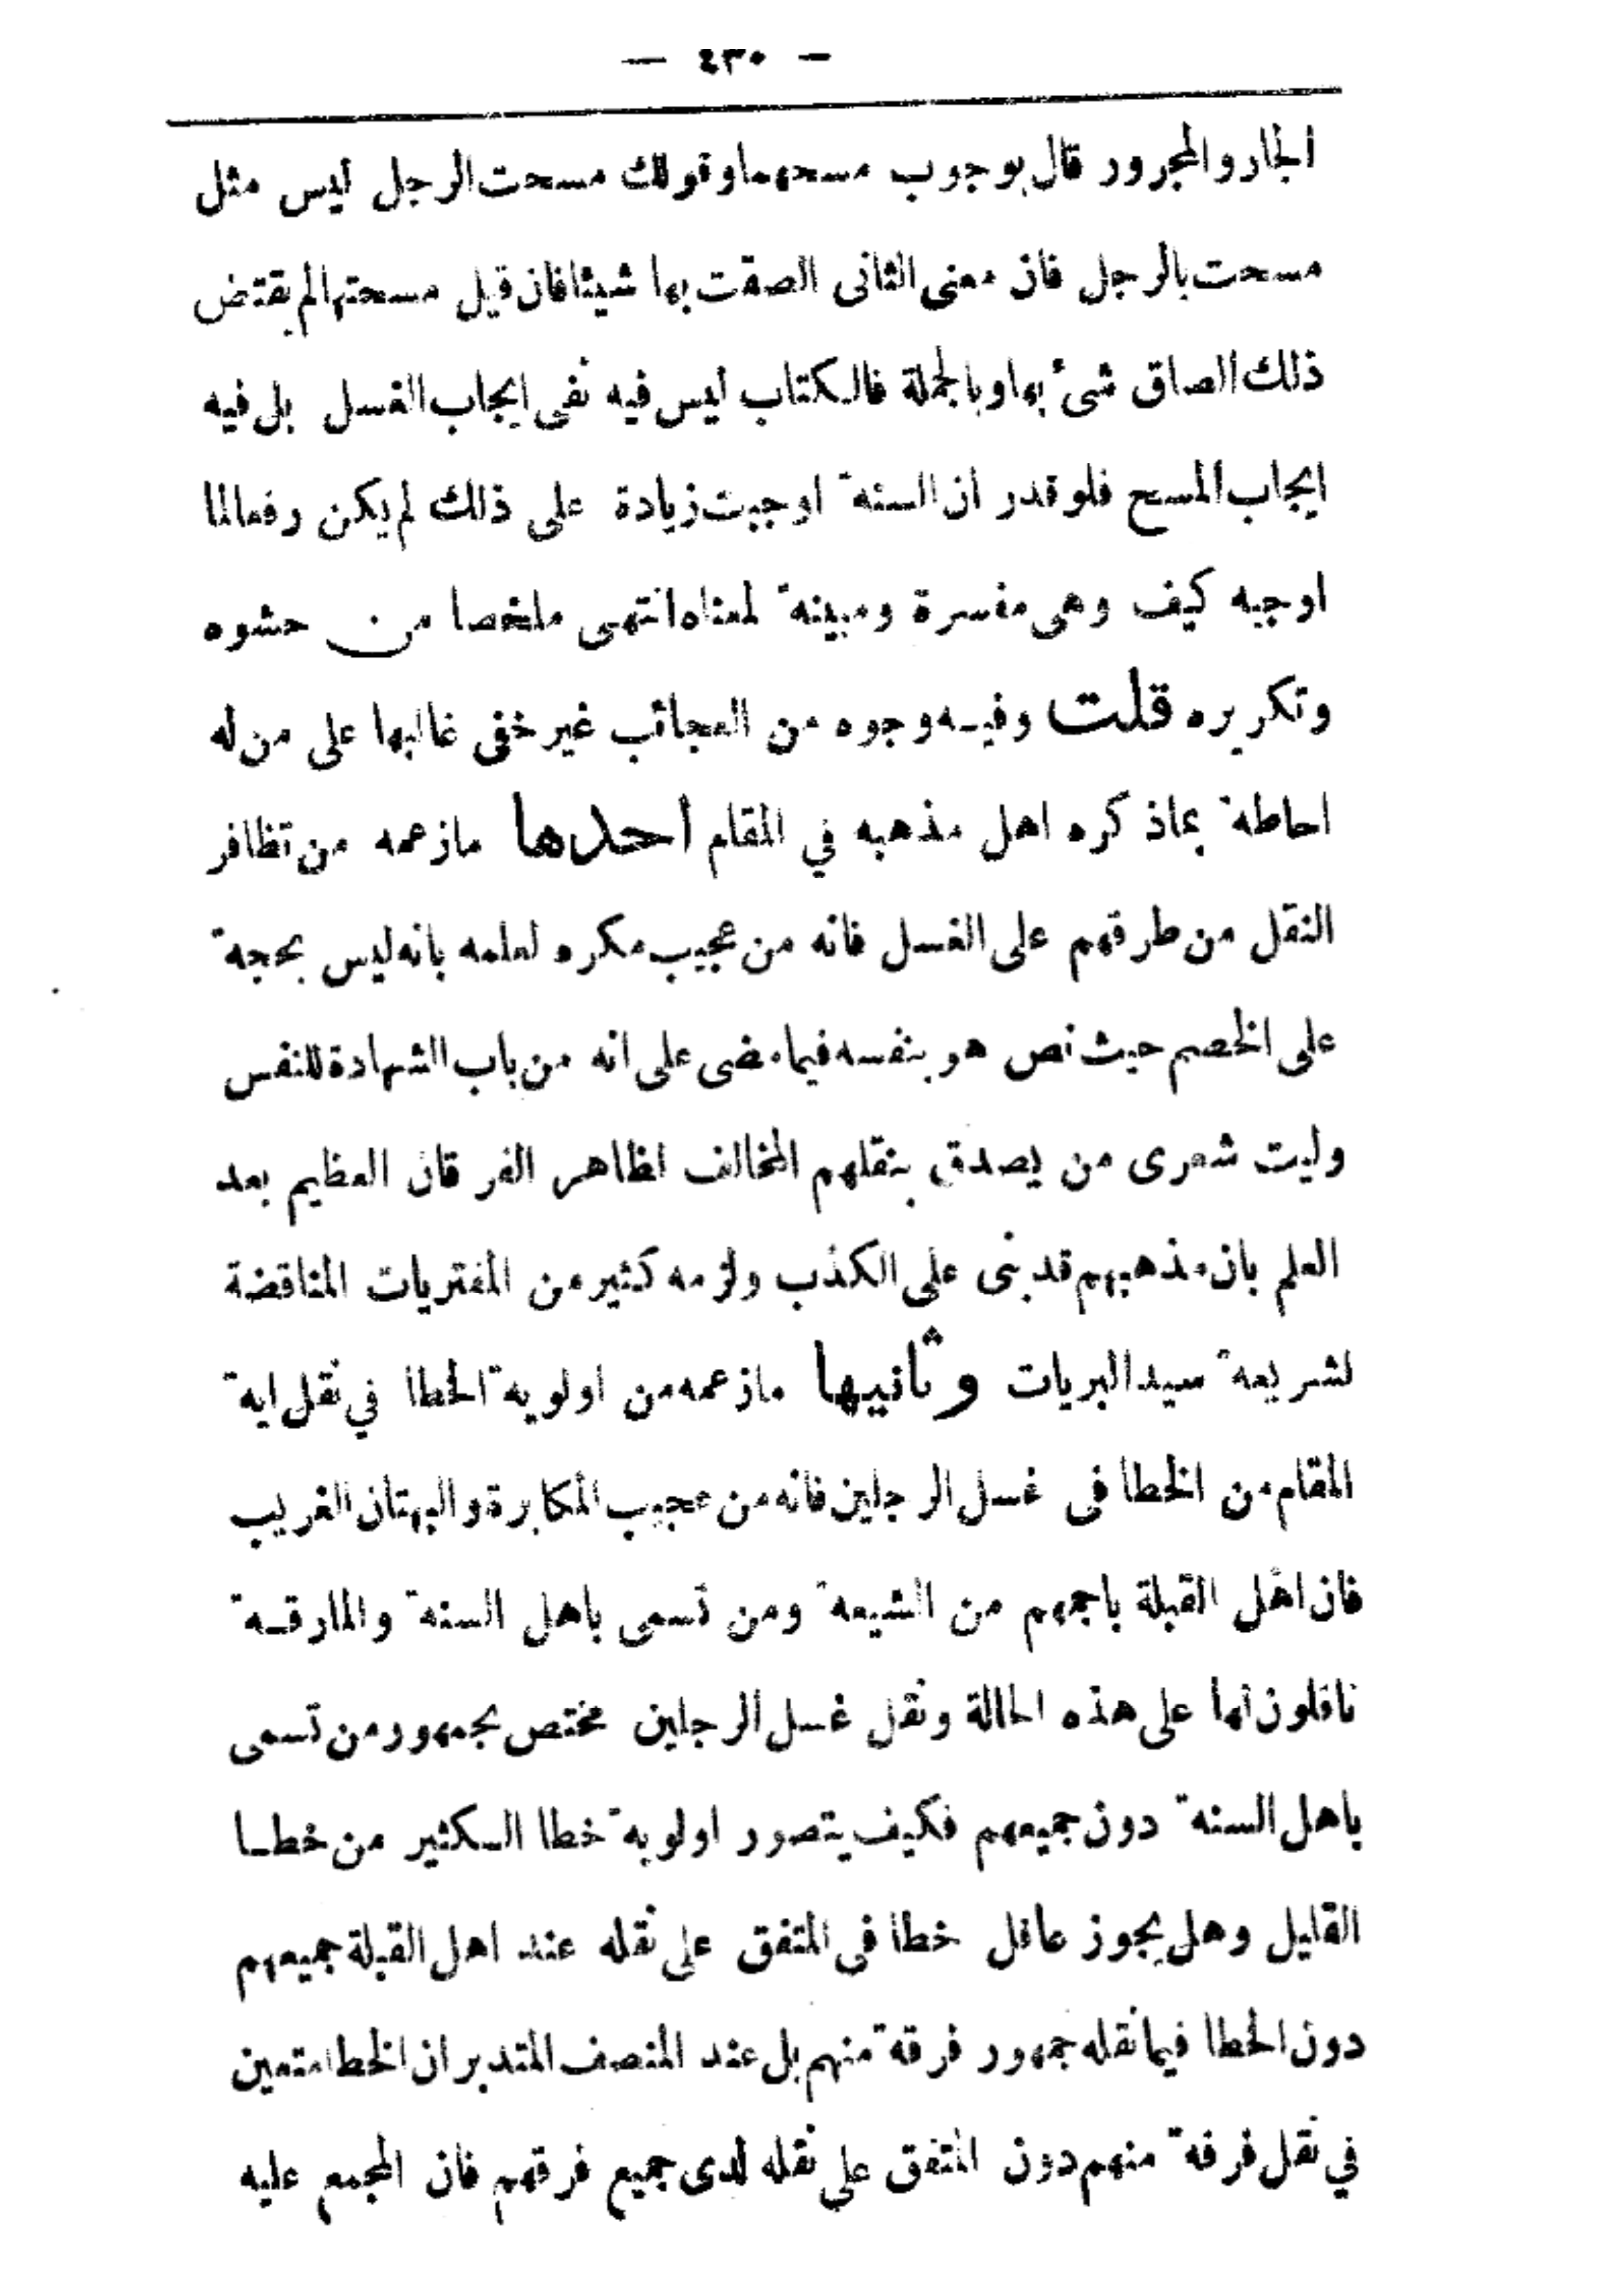 — ٤٣٠ —
الجار والمجرور قال بوجوب مسحهما وقولك مسحت الرجل ليس مثل
مسحت بالرجل فان معنى الثانى الصقت بها شيئا فان قيل مسحتها لم يقتض
ذلك الصاق شئ بها وبالجملة فالكتاب ليس فيه نفى ايجاب الغسل بل فيه
ايجاب المسح فلو قدر ان السنة اوجبت زيادة على ذلك لم يكن رفعا لما
اوجبه كيف وهى مفسرة ومبينة لمعناه انتهى ملخصا من حشوه
وتكريره قلت وفيه وجوه من العجائب غير خفى غالبها على من له
احاطة بما ذكره اهل مذهبه في المقام احدها ما زعمه من تظافر
النقل من طرقهم على الغسل فانه من عجيب مكره لعلمه بانه ليس بحجة
على الخصم حيث نص هو بنفسه فيما مضى على انه من باب الشهادة للنفس
وليت شعرى من يصدق بنقلهم المخالف لظاهر الفرقان العظيم بعد
العلم بان مذهبهم قد بنى على الكذب ولزمه كثير من المفتريات المناقضة
لشريعة سيد البريات وثانيها ما زعمه من اولوية الخطا في نقل اية
المقام من الخطا فى غسل الرجلين فانه من عجيب المكابرة والبهتان الغريب
فان اهل القبلة باجمعهم من الشيعة ومن تسمى باهل السنة والمارقة
ناقلون لها على هذه الحالة ونقل غسل الرجلين مختص بجمهور من تسمى
باهل السنة دون جميعهم فكيف يتصور اولوية خطا الكثير من خطا
القليل وهل يجوز عاقل خطا فى المتفق على نقله عند اهل القبلة جميعهم
دون الخطا فيما نقله جمهور فرقة منهم بل عند المنصف المتدبر ان الخطا متعين
في نقل فرقة منهم دون المتفق على نقله لدى جميع فرقهم فان المجمع عليه